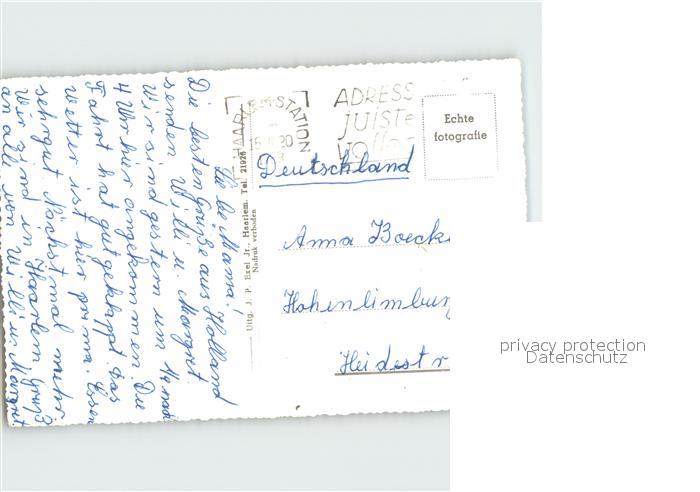 Liebe Mama!
Die besten Grüße aus Holland
senden Willi u Margret.
Wir sind gestern um
4 Uhr hier angekommen Die
Fahrt hat gut geklappt. Das
Wetter ist hier prima. Essen
sehr gut Nächstmal mehr
Wir sind in Haarlem. Gruß
an alle von Willi u Margret
Uitg. J. P. Exel Jr., Haarlem. Tel. 21926
Nadruk verboden
HAARLEM-STATION
ADRESS
juiste
Echte
fotografie
Deutschland
Anna Boeck
Hohenlimburg
Heidestr
privacy protection
Datenschutz